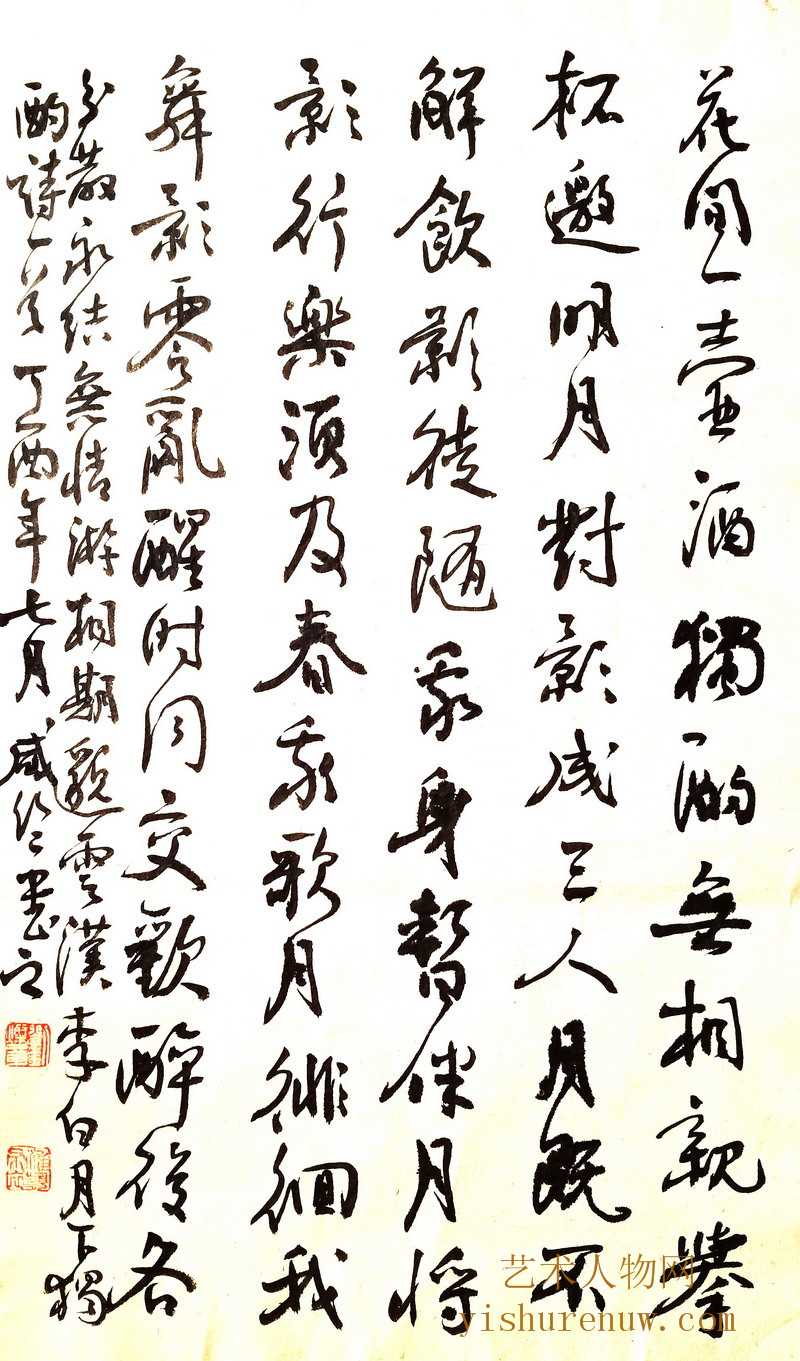 花間一壺酒獨酌無相親舉
杯邀明月對影成三人月既不
解飲影徒隨我身暫伴月將
影行樂須及春我歌月徘徊我
舞影零亂醒時同交歡醉後各
分散永結無情游相期邈雲漢李白月下獨
酌詩一首丁酉年七月書之
艺术人物网
yishurenuw.com